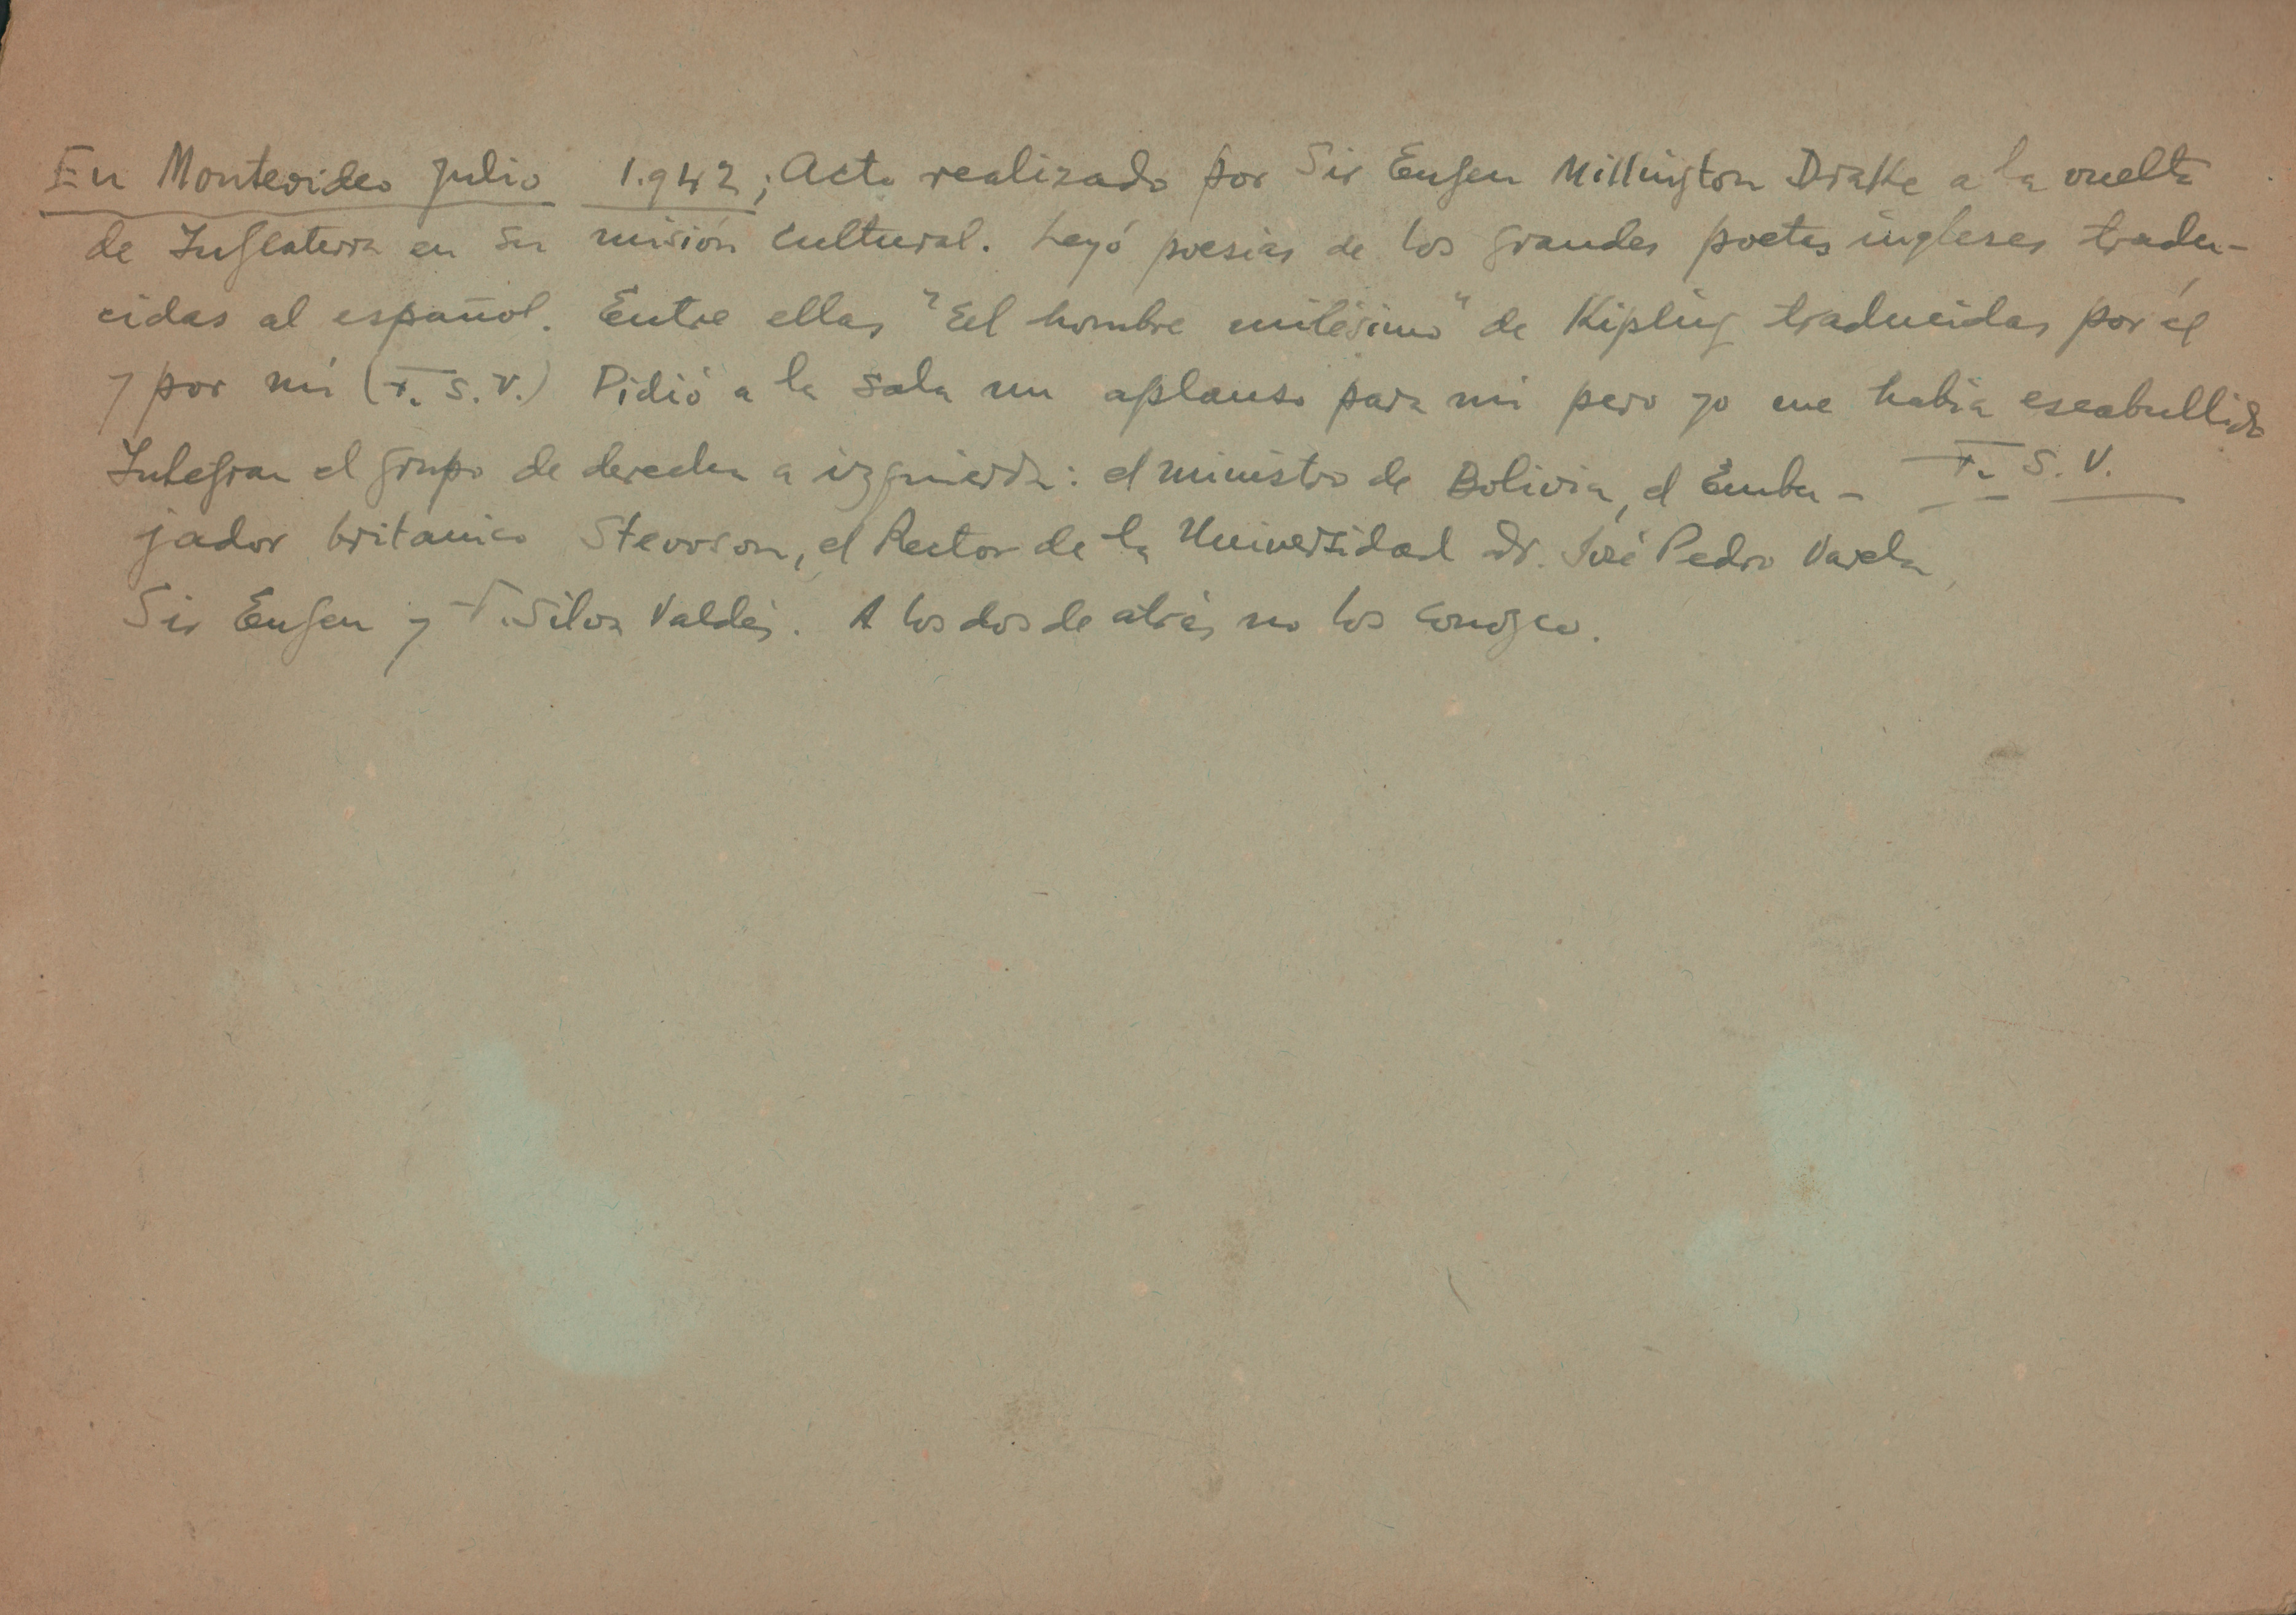 En Montevideo Julio 1.942; Acto realizado por Sir Eugen Millington Drake a la vuelta
de Inglaterra en su misión cultural. Leyó poesias de los grandes poetas ingleses tradu-
cidas al español. Entre ellas "Eel hombre milésimo" de Kipling traducidas por él
y por mí (F. S. V.) Pidió a la sala un aplauso para mi pero yo me habia escabullido
F. S. V.
Integran el grupo de derecha a izquierda: el ministro de Bolivia, el Emba-
jador britanico Stevvson, el Rector de la Universidad Dr. José Pedro Varela,
Sir Eugen y F. Silva Valdés. A los dos de atrás no los conozco.